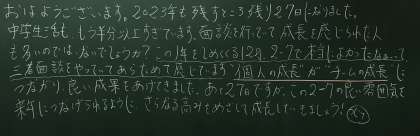 おはようございます。2023年も残すところ残り27日になりました。
中学生活も、もう半分以上すぎています。面談を行っていて成長を感じられた人
も多いのではないでしょうか？この1年をしめくくる12月、2-7で本当によかったなぁって
三者面談をやっていてあらためて感じています。"個人の成長"が"チームの成長"に
つながり、良い成果をあげてきました。あと27日ですが、この2-7の良い雰囲気を
来年につなげられるように、さらなる高みをめざして成長していきましょう！